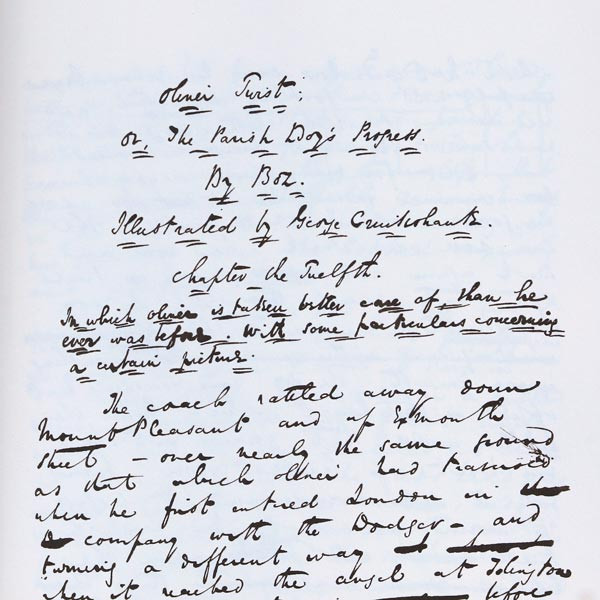 Oliver Twist;
or, The Parish Boy's Progress.
By Boz.
Illustrated by George Cruikshank.
Chapter the Twelfth.
In which Oliver is taken better care of, than he
ever was before. With some particulars concerning
a certain picture.
The coach rattled away down
Mount Pleasant and up Exmouth
Street – over nearly the same ground
as that which Oliver had traversed
when he first entered London in
company with the Dodger – and
turning a different way
when it reached the Angel at Islington
before